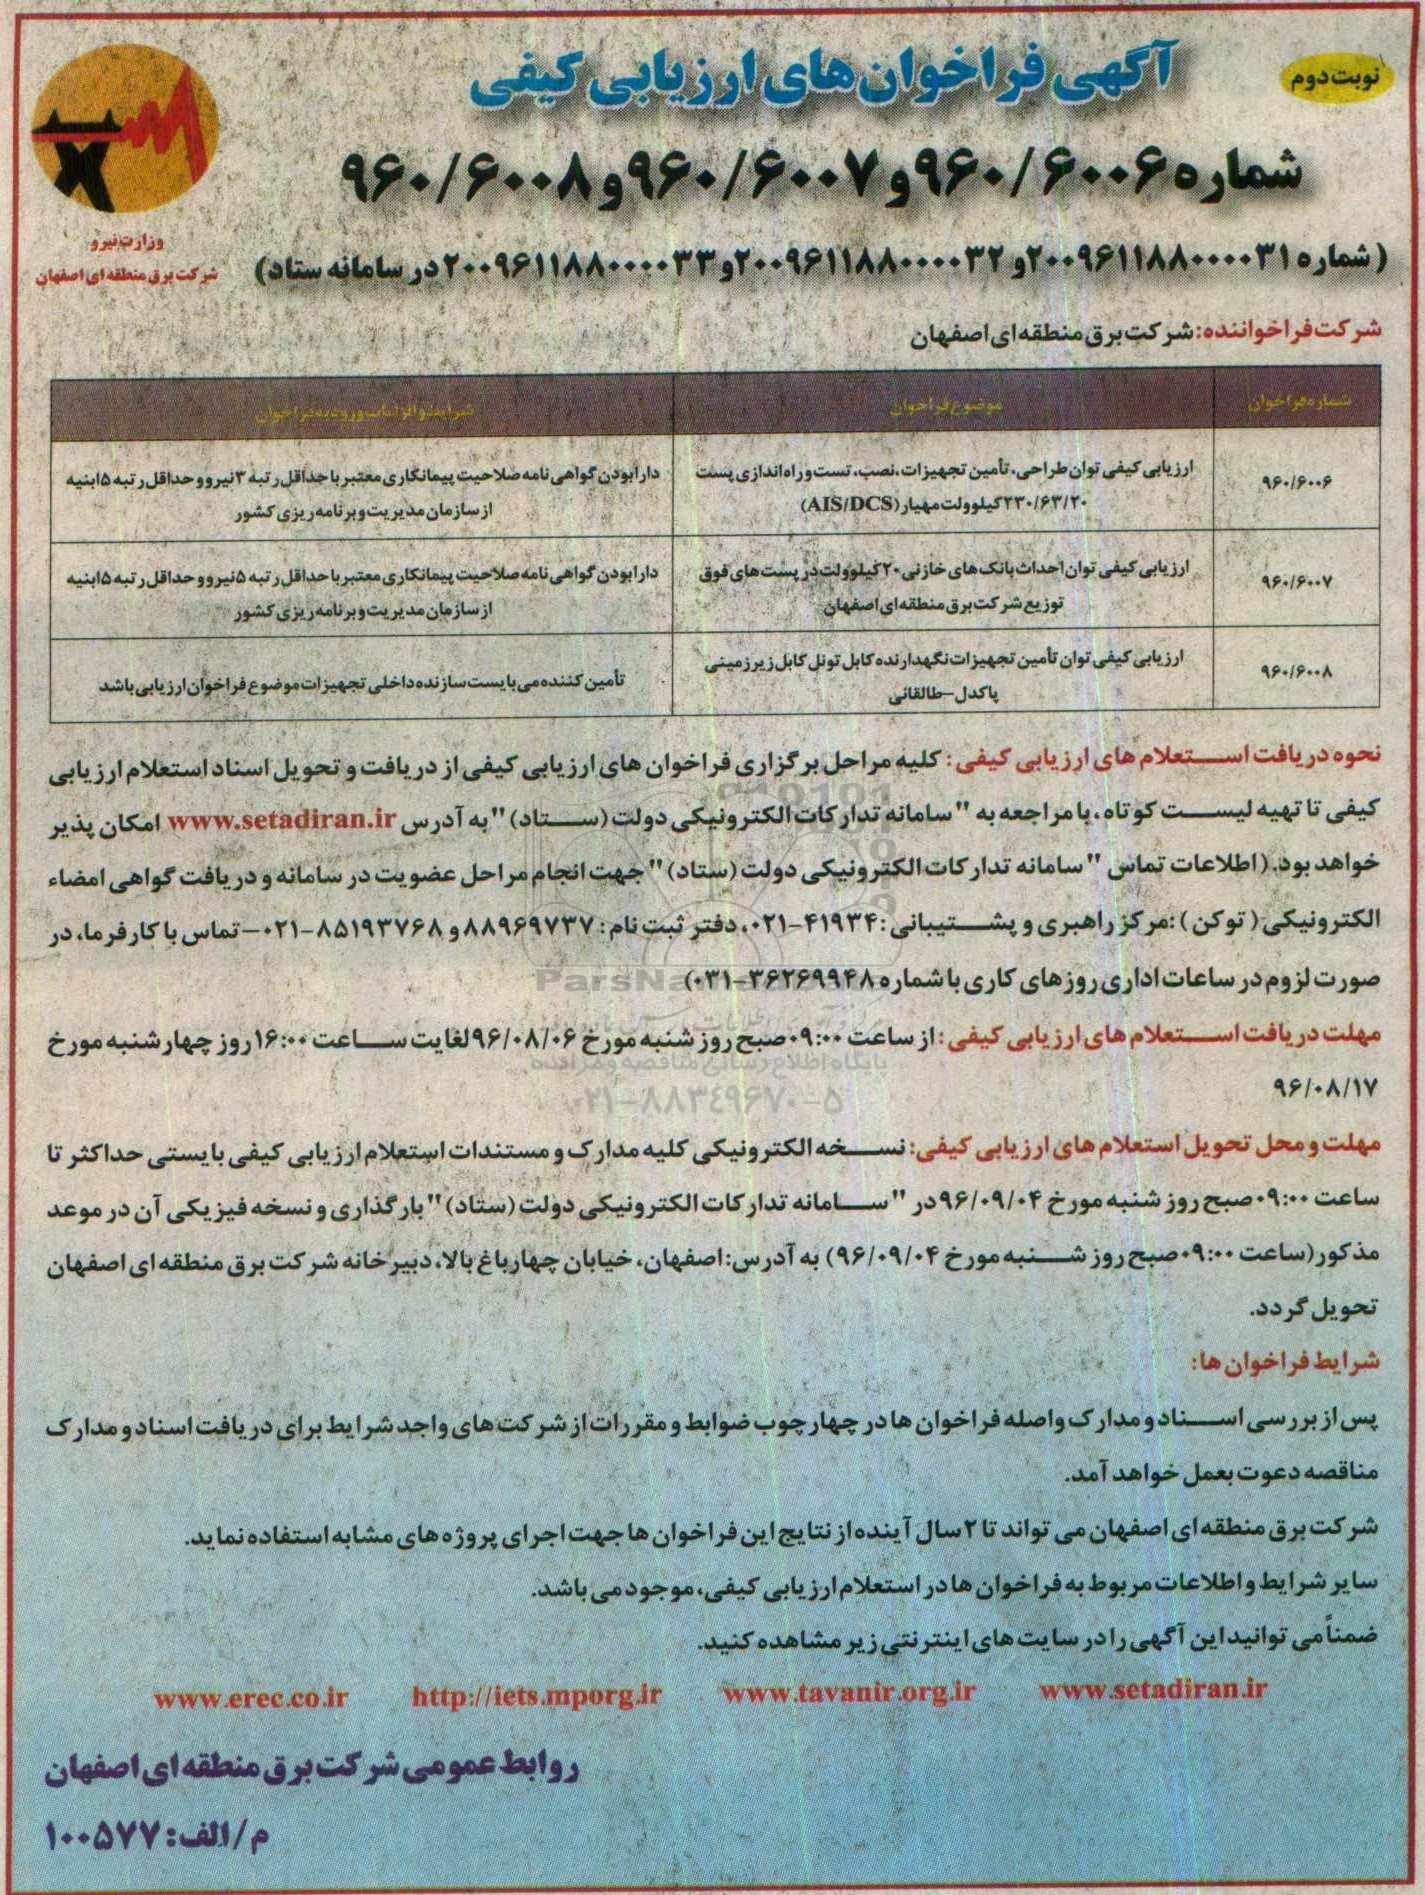 نوبت دوم
آگهی فراخوان های ارزیابی کیفی
شماره ۹۶۰/۶۰۰۶ و ۹۶۰/۶۰۰۷ و ۹۶۰/۶۰۰۸
(شماره ۲۰۰۹۶۱۱۸۸۰۰۰۰۳۱ و ۲۰۰۹۶۱۱۸۸۰۰۰۰۳۲ و ۲۰۰۹۶۱۱۸۸۰۰۰۰۳۳ در سامانه ستاد)
وزارت نیرو
شرکت برق منطقه ای اصفهان
شرکت فراخواننده: شرکت برق منطقه ای اصفهان
شماره فراخوان موضوع فراخوان شرایط و الزامات ورود به فراخوان
۹۶۰/۶۰۰۶
ارزیابی کیفی توان طراحی، تأمین تجهیزات، نصب، تست و راه اندازی پست
۲۳۰/۶۳/۲۰ کیلوولت مهیار (AIS/DCS)
دارا بودن گواهی نامه صلاحیت پیمانکاری معتبر با حداقل رتبه ۳ نیرو و حداقل رتبه ۵ ابنیه
از سازمان مدیریت و برنامه ریزی کشور
۹۶۰/۶۰۰۷
ارزیابی کیفی توان احداث بانک های خازنی ۲۰ کیلوولت در پست های فوق
توزیع شرکت برق منطقه ای اصفهان
دارا بودن گواهی نامه صلاحیت پیمانکاری معتبر با حداقل رتبه ۵ نیرو و حداقل رتبه ۵ ابنیه
از سازمان مدیریت و برنامه ریزی کشور
۹۶۰/۶۰۰۸
ارزیابی کیفی توان تأمین تجهیزات نگهدارنده کابل تونل کابل زیرزمینی
پاکدل-طالقانی
تأمین کننده می بایست سازنده داخلی تجهیزات موضوع فراخوان ارزیابی باشد
نحوه دریافت استعلام های ارزیابی کیفی: کلیه مراحل برگزاری فراخوان های ارزیابی کیفی از دریافت و تحویل اسناد استعلام ارزیابی
کیفی تا تهیه لیست کوتاه، با مراجعه به "سامانه تدارکات الکترونیکی دولت (ستاد)" به آدرس www.setadiran.ir امکان پذیر
خواهد بود. (اطلاعات تماس "سامانه تدارکات الکترونیکی دولت (ستاد)" جهت انجام مراحل عضویت در سامانه و دریافت گواهی امضاء
الکترونیکی (توکن): مرکز راهبری و پشتیبانی: ۴۱۹۳۴-۰۲۱، دفتر ثبت نام: ۸۸۹۶۹۷۳۷ و ۸۵۱۹۳۷۶۸-۰۲۱ – تماس با کارفرما، در
صورت لزوم در ساعات اداری روزهای کاری با شماره ۳۶۲۶۹۹۴۸-۰۳۱)
مهلت دریافت استعلام های ارزیابی کیفی: از ساعت ۰۹:۰۰ صبح روز شنبه مورخ ۹۶/۰۸/۰۶ لغایت ساعت ۱۶:۰۰ روز چهارشنبه مورخ
۹۶/۰۸/۱۷
مهلت و محل تحویل استعلام های ارزیابی کیفی: نسخه الکترونیکی کلیه مدارک و مستندات استعلام ارزیابی کیفی بایستی حداکثر تا
ساعت ۰۹:۰۰ صبح روز شنبه مورخ ۹۶/۰۹/۰۴ در "سامانه تدارکات الکترونیکی دولت (ستاد)" بارگذاری و نسخه فیزیکی آن در موعد
مذکور (ساعت ۰۹:۰۰ صبح روز شنبه مورخ ۹۶/۰۹/۰۴) به آدرس: اصفهان، خیابان چهارباغ بالا، دبیرخانه شرکت برق منطقه ای اصفهان
تحویل گردد.
شرایط فراخوان ها:
پس از بررسی اسناد و مدارک واصله فراخوان ها در چهارچوب ضوابط و مقررات از شرکت های واجد شرایط برای دریافت اسناد و مدارک
مناقصه دعوت بعمل خواهد آمد.
شرکت برق منطقه ای اصفهان می تواند تا ۲ سال آینده از نتایج این فراخوان ها جهت اجرای پروژه های مشابه استفاده نماید.
سایر شرایط و اطلاعات مربوط به فراخوان ها در استعلام ارزیابی کیفی، موجود می باشد.
ضمناً می توانید این آگهی را در سایت های اینترنتی زیر مشاهده کنید.
www.setadiran.ir www.tavanir.org.ir http://iets.mporg.ir www.erec.co.ir
روابط عمومی شرکت برق منطقه ای اصفهان
م/الف: ۱۰۰۵۷۷
پایگاه اطلاع رسانی مناقصه و مزایده
۰۲۱-۸۸۳۴۹۶۷۰-۵